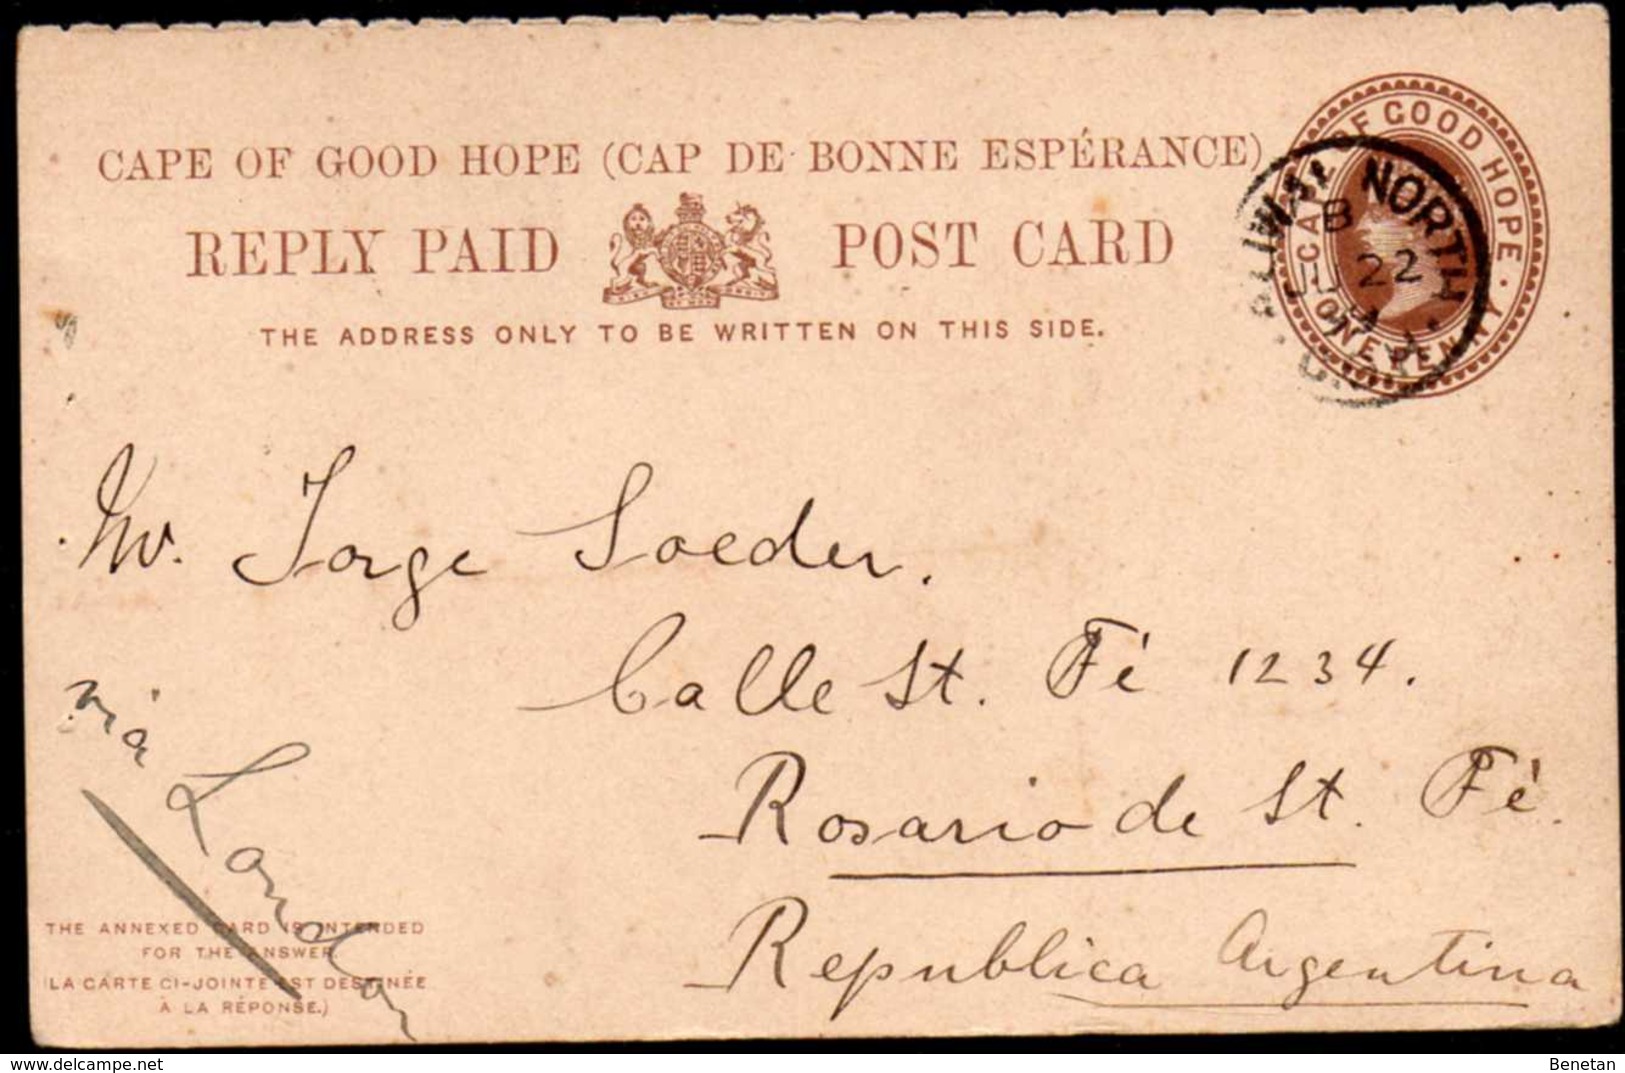 CAPE OF GOOD HOPE (CAP DE BONNE ESPÉRANCE)
REPLY PAID POST CARD
THE ADDRESS ONLY TO BE WRITTEN ON THIS SIDE.
CAPE OF GOOD HOPE.
ONE PENNY
ALIWAL NORTH
B
JU 22
Mr. Jorge Soeder.
Calle St. Fé 1234.
Rosario de St. Fé.
Republica Argentina
via London
THE ANNEXED CARD IS INTENDED
FOR THE ANSWER.
(LA CARTE CI-JOINTE EST DESTINÉE
À LA RÉPONSE.)
Benetan